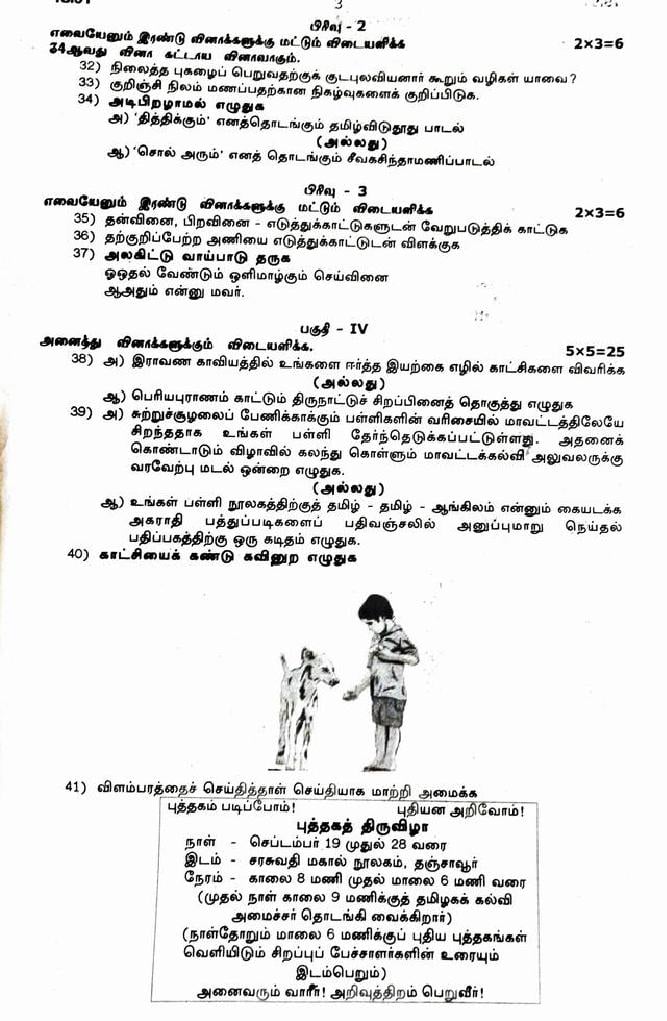 3
பிரிவு - 2
எவையேனும் இரண்டு வினாக்களுக்கு மட்டும் விடையளிக்க 2×3=6
34ஆவது வினா கட்டாய வினாவாகும்.
32) நிலைத்த புகழைப் பெறுவதற்குக் குடபுலவியனார் கூறும் வழிகள் யாவை?
33) குறிஞ்சி நிலம் மணப்பதற்கான நிகழ்வுகளைக் குறிப்பிடுக.
34) அடிபிறழாமல் எழுதுக
அ) 'தித்திக்கும்' எனத்தொடங்கும் தமிழ்விடுதூது பாடல்
(அல்லது)
ஆ) 'சொல் அரும்' எனத் தொடங்கும் சீவகசிந்தாமணிப்பாடல்
பிரிவு - 3
எவையேனும் இரண்டு வினாக்களுக்கு மட்டும் விடையளிக்க 2×3=6
35) தன்வினை, பிறவினை - எடுத்துக்காட்டுகளுடன் வேறுபடுத்திக் காட்டுக
36) தற்குறிப்பேற்ற அணியை எடுத்துக்காட்டுடன் விளக்குக
37) அலகிட்டு வாய்பாடு தருக
ஓஒதல் வேண்டும் ஒளிமாழ்கும் செய்வினை
ஆஅதும் என்னு மவர்.
பகுதி - IV
அனைத்து வினாக்களுக்கும் விடையளிக்க. 5×5=25
38) அ) இராவண காவியத்தில் உங்களை ஈர்த்த இயற்கை எழில் காட்சிகளை விவரிக்க
(அல்லது)
ஆ) பெரியபுராணம் காட்டும் திருநாட்டுச் சிறப்பினைத் தொகுத்து எழுதுக
39) அ) சுற்றுச்சூழலைப் பேணிக்காக்கும் பள்ளிகளின் வரிசையில் மாவட்டத்திலேயே
சிறந்ததாக உங்கள் பள்ளி தேர்ந்தெடுக்கப்பட்டுள்ளது. அதனைக்
கொண்டாடும் விழாவில் கலந்து கொள்ளும் மாவட்டக்கல்வி அலுவலருக்கு
வரவேற்பு மடல் ஒன்றை எழுதுக.
(அல்லது)
ஆ) உங்கள் பள்ளி நூலகத்திற்குத் தமிழ் - தமிழ் - ஆங்கிலம் என்னும் கையடக்க
அகராதி பத்துப்படிகளைப் பதிவஞ்சலில் அனுப்புமாறு நெய்தல்
பதிப்பகத்திற்கு ஒரு கடிதம் எழுதுக.
40) காட்சியைக் கண்டு கவினுற எழுதுக
41) விளம்பரத்தைச் செய்தித்தாள் செய்தியாக மாற்றி அமைக்க
புத்தகம் படிப்போம்! புதியன அறிவோம்!
புத்தகத் திருவிழா
நாள் - செப்டம்பர் 19 முதல் 28 வரை
இடம் - சரசுவதி மகால் நூலகம், தஞ்சாவூர்
நேரம் - காலை 8 மணி முதல் மாலை 6 மணி வரை
(முதல் நாள் காலை 9 மணிக்குத் தமிழகக் கல்வி
அமைச்சர் தொடங்கி வைக்கிறார்)
(நாள்தோறும் மாலை 6 மணிக்குப் புதிய புத்தகங்கள்
வெளியிடும் சிறப்புப் பேச்சாளர்களின் உரையும்
இடம்பெறும்)
அனைவரும் வாரீர்! அறிவுத்திறம் பெறுவீர்!